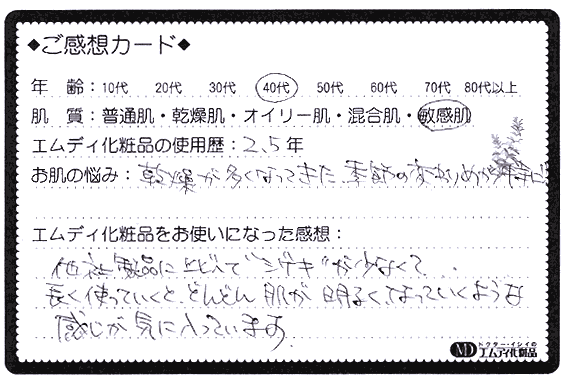 ◆ご感想カード◆
年 齢：10代 20代 30代 40代 50代 60代 70代 80代以上
肌 質：普通肌・乾燥肌・オイリー肌・混合肌・敏感肌
エムディ化粧品の使用歴：2.5年
お肌の悩み：乾燥が多くなってきた 季節の変わりめが特に
エムディ化粧品をお使いになった感想：
他社製品に比べて"シゲキ"が少なくて...
長く使っていくと、どんどん肌が明るくなっていくような
感じが気に入っています
MD ドクターイシイの
エムディ化粧品